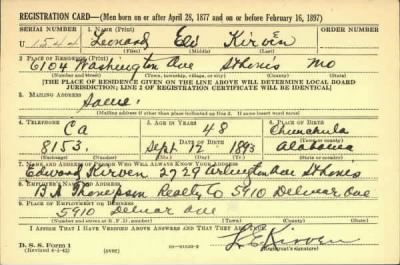 REGISTRATION CARD—(Men born on or after April 28, 1877 and on or before February 16, 1897)
SERIAL NUMBER 1. NAME (Print) ORDER NUMBER
U 1544 Leonard Eli Kirven
(First) (Middle) (Last)
2. PLACE OF RESIDENCE (Print)
6104 Washington Ave St Louis Mo
(Number and street) (Town, township, village, or city) (County) (State)
[THE PLACE OF RESIDENCE GIVEN ON THE LINE ABOVE WILL DETERMINE LOCAL BOARD
JURISDICTION; LINE 2 OF REGISTRATION CERTIFICATE WILL BE IDENTICAL]
3. MAILING ADDRESS
Same
[Mailing address if other than place indicated on line 2. If same insert word same]
4. TELEPHONE 5. AGE IN YEARS 6. PLACE OF BIRTH
Ca 48 Chunchula
DATE OF BIRTH (Town or county)
8153. Sept 12 1893 Alabama
(Mo.) (Day) (Yr.) (State or country)
7. NAME AND ADDRESS OF PERSON WHO WILL ALWAYS KNOW YOUR ADDRESS
Edward Kirven 2729 Arlington Ave St Louis
8. EMPLOYER'S NAME AND ADDRESS
B.A. Thompson Realty Co 5910 Delmar Ave
9. PLACE OF EMPLOYMENT OR BUSINESS
5910 Delmar Ave
(Number and street or R. F. D. number) (Town) (County) (State)
I AFFIRM THAT I HAVE VERIFIED ABOVE ANSWERS AND THAT THEY ARE TRUE.
D. S. S. Form 1
(Revised 4-1-42) (over) L E Kirven
(Registrant's signature)